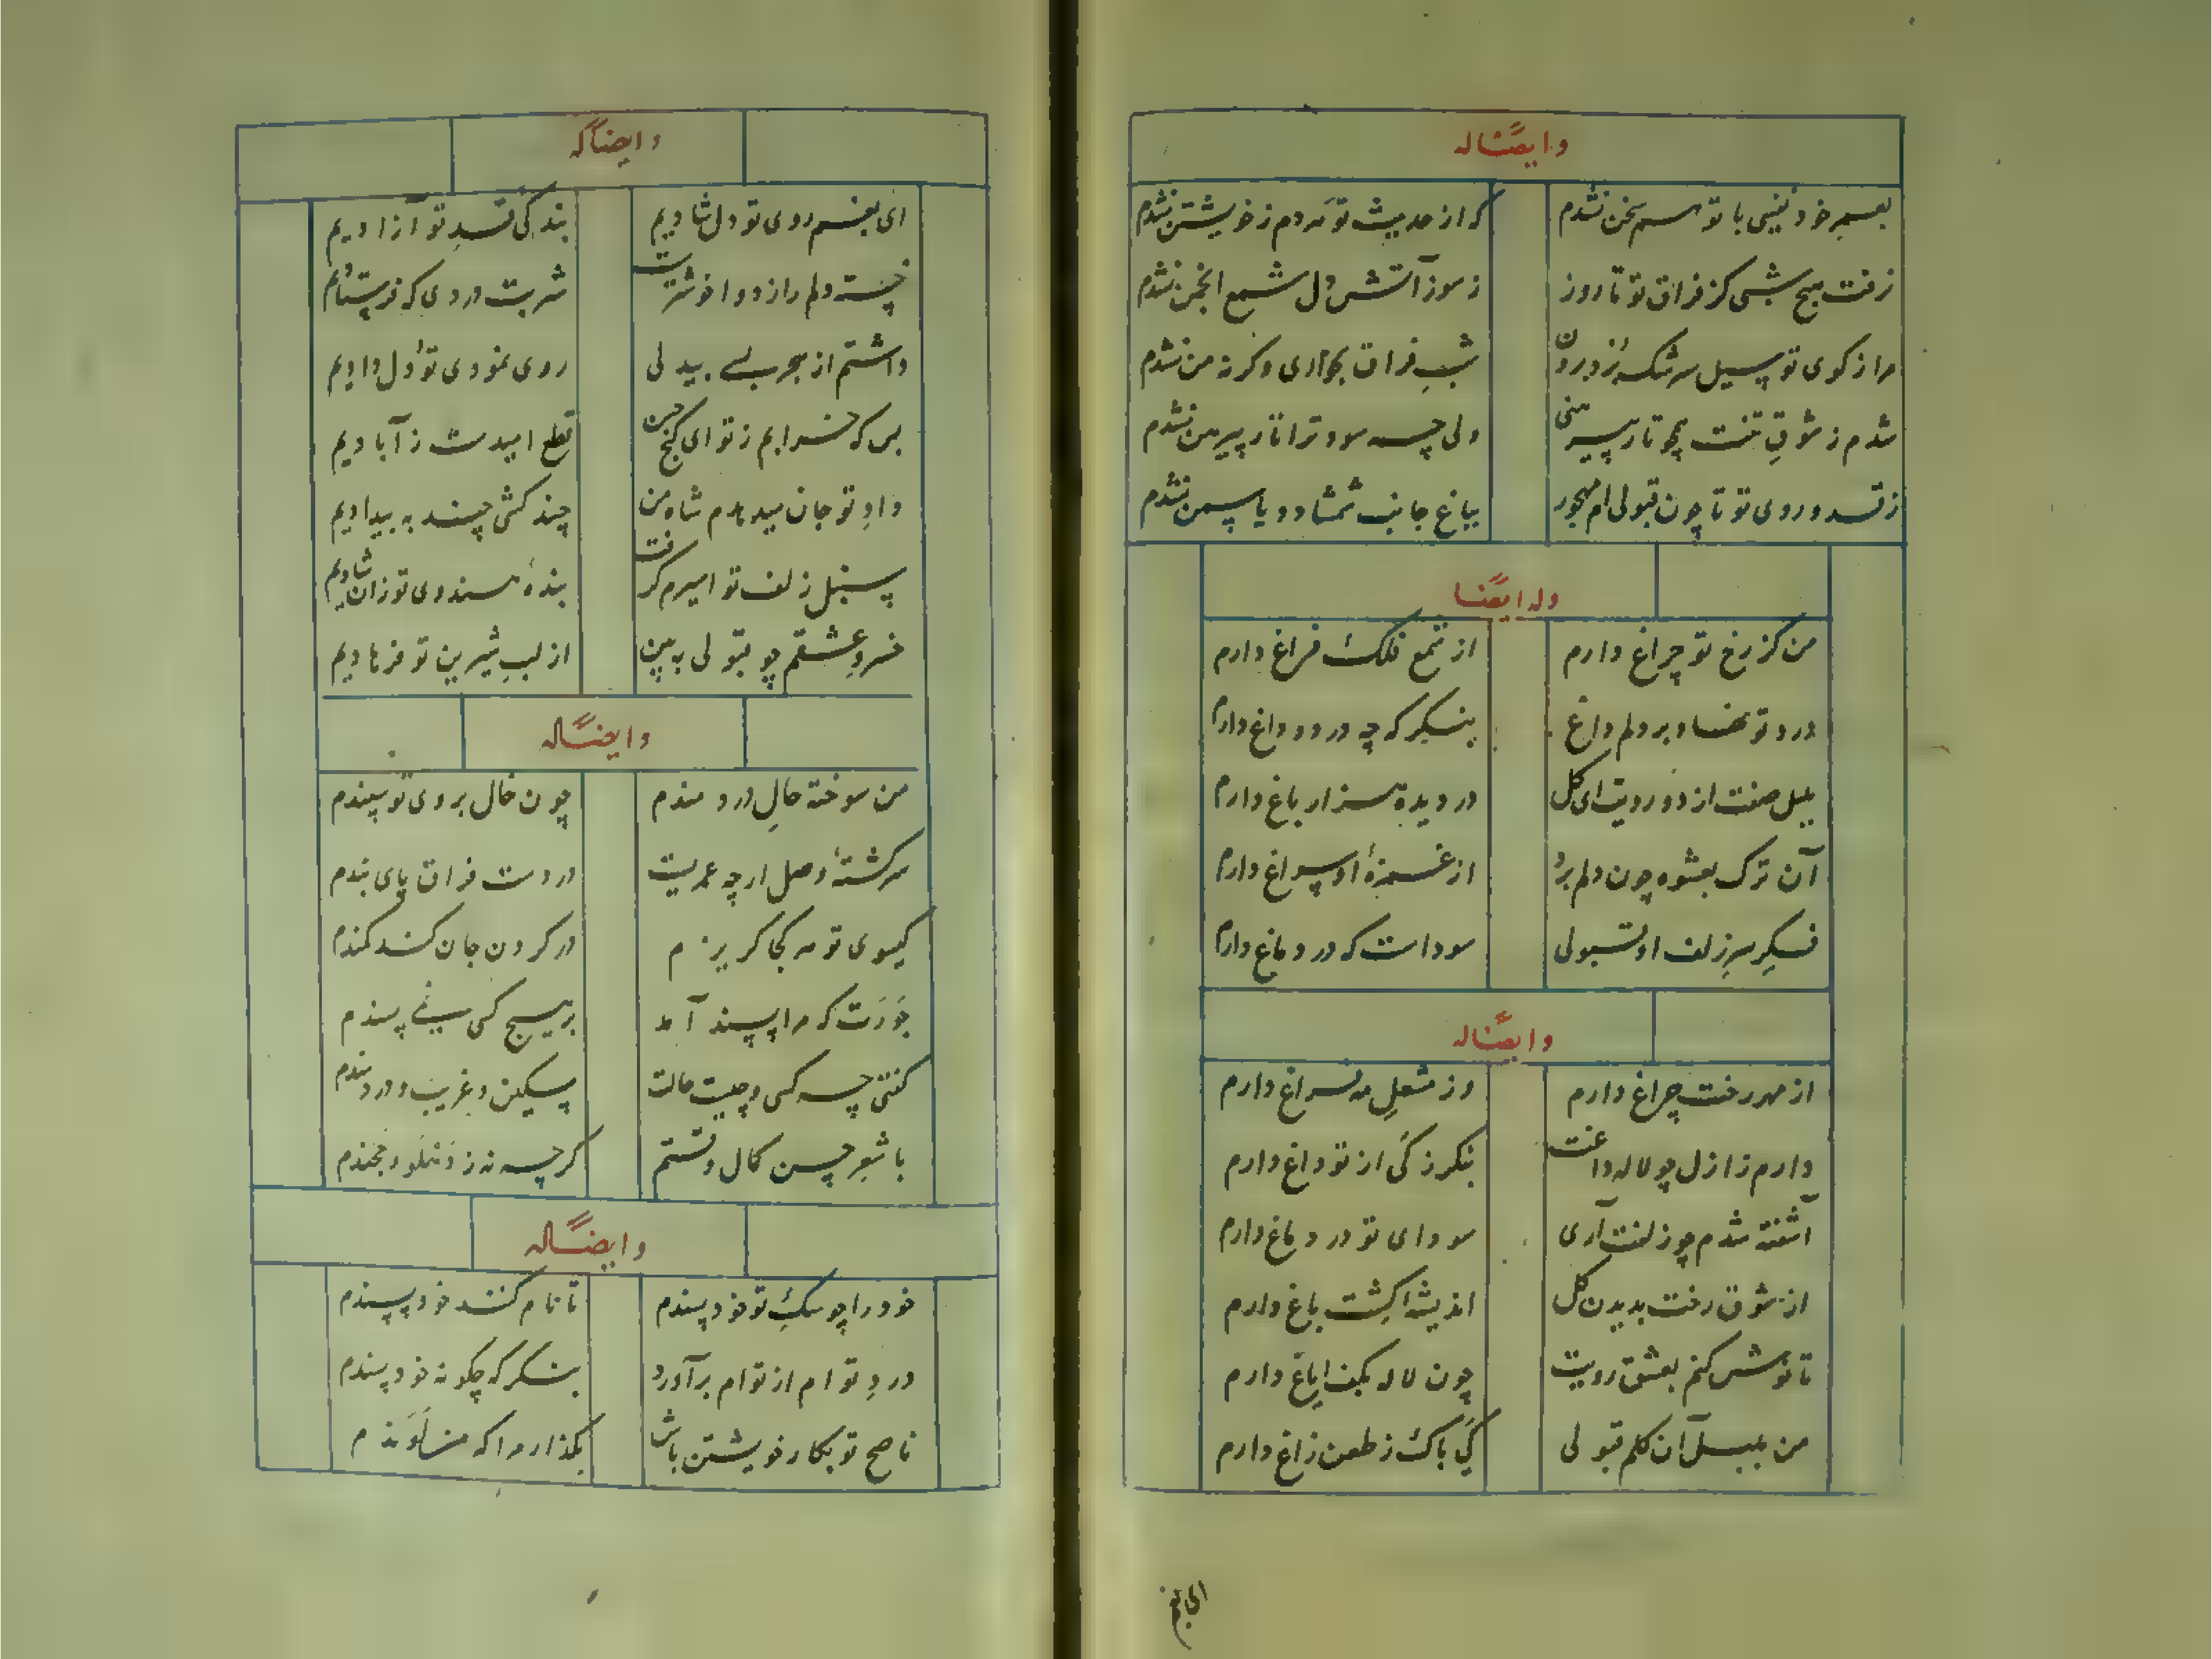 وایضًا له
بعمر خود نفسی با تو هم سخن نشدم
که از حدیث تو هر دم ز خویشتن نشدم
نرفت هیچ شبی کز فراق تو تا روز
ز سوز آتش دل شمع انجمن نشدم
مرا ز کوی تو سیل سرشک برد برون
شب فراق بخواری وگر نه من نشدم
شدم ز شوق تنت همچو تار پیرهنی
ولی چه سود ترا تار پیرهن نشدم
ز قد و روی تو تا چون قبولی ام مهجور
بباغ جانب شمشاد و یاسمن نشدم
وله ایضًا
من کز رخ تو چراغ دارم
از شمع فلک فراغ دارم
درد تو نهاد بر دلم داغ
بنگر که چه درد و داغ دارم
بلبل صفت از دو رویت ای گل
در دیده هزار باغ دارم
آن ترک بعشوه چون دلم برد
از غمزهٔ او سراغ دارم
فکر سر زلف او قبولی
سوداست که در دماغ دارم
وایضًا له
از مهر رخت چراغ دارم
وز مشعل مه فراغ دارم
دارم ز ازل چو لاله داغت
بنگر ز کی از تو داغ دارم
آشفته شدم چو زلفت آری
سودای تو در دماغ دارم
از شوق رخت بدیدن گل
اندیشهٔ کشت باغ دارم
تا نوش کنم بعشق رویت
چون لاله بکف ایاغ دارم
من بلبل آن گلم قبولی
کی باک ز طعن زاغ دارم
الی بغم
وایضًا له
ای بغم روی تو دل شادیم
بندگی قد تو آزادیم
خسته دلم را ز دوا خوشترست
شربت دردی که فرستادیم
داشتم از هجر بسی بیدلی
روی نمودی تو و دل دادیم
بس که خرابم ز تو ای گنج حسن
قطع امیدست ز آبادیم
داد تو جان میدهدم شاه من
چند کشی چند به بیدادیم
سنبل زلف تو اسیرم گرفت
بندهٔ هندوی تو زان شادیم
خسرو عشقم چو قبولی ببین
از لب شیرین تو فرهادیم
وایضًا له
من سوخته حال دردمندم
چون خال بروی تو سپندم
سرگشتهٔ وصل ارچه عمریست
در دست فراق پای بندم
گیسوی تو هر کجا گریزم
در گردن جان کند کمندم
جورت که مرا پسند آمد
بر هیچ کسی نمی پسندم
گفتی چه کسی و چیست حالت
مسکین و غریب و دردمندم
با شعر حسن کمال وقتم
گرچه نه ز دنکلو و خجندم
وایضًا له
خود را چو سگ تو خود پسندم
تا نام کنند خود پسندم
درد تو ام از توام برآورد
بنگر که چگونه خود پسندم
ناصح تو بکار خویشتن باش
بگذار مرا که من لوندم